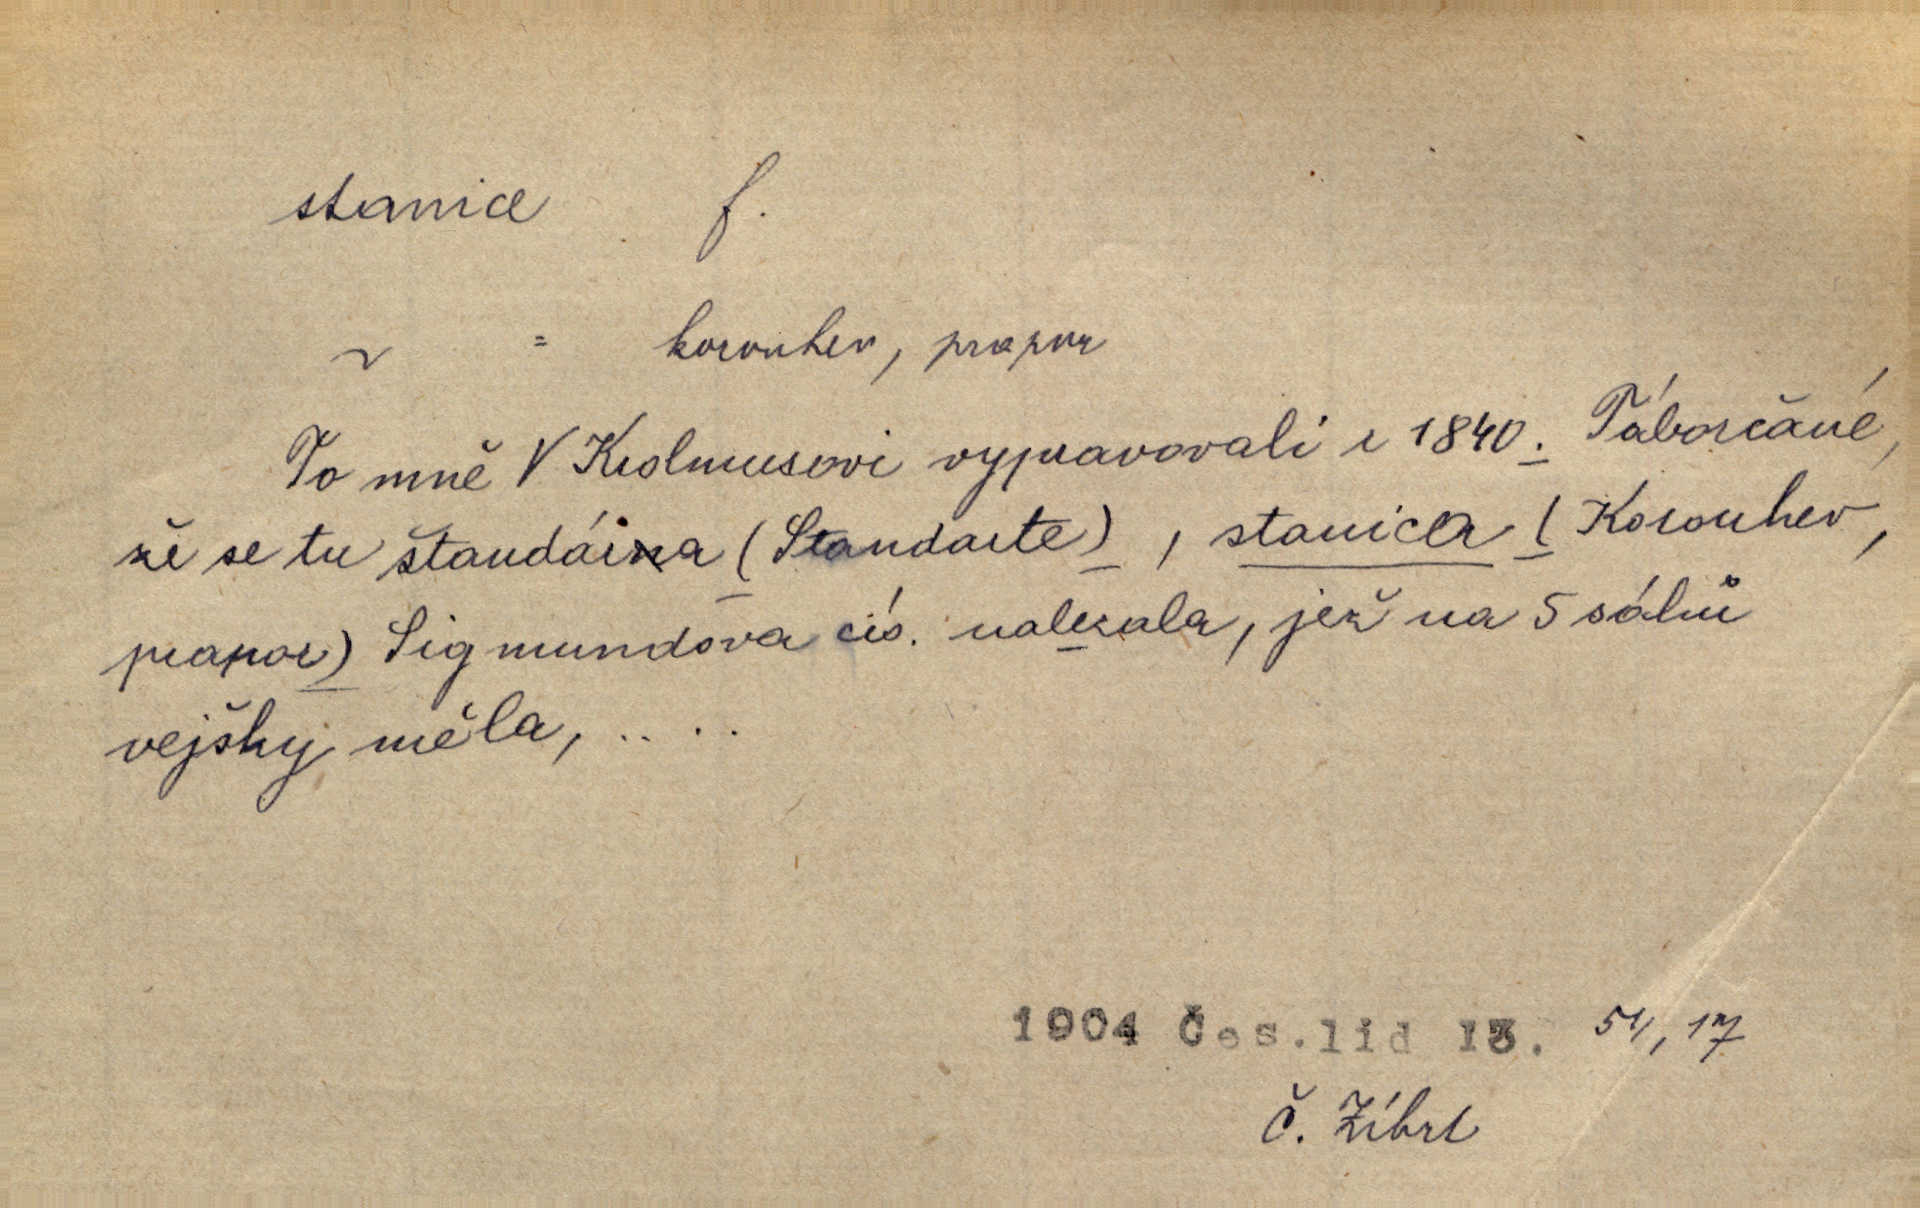 stanice f.
~ = korouhev, prapor
To mně V Krolmusovi vypravovali r 1840. Táborčané,
že se tu štandárna (Standarte), stanica (Korouhev,
prapor) Sigmundova cís. nalezala, jež na 5 sáhů
vejšky měla, ....
1904 Čes.lid 13. 54, 17
Č. Zíbrt